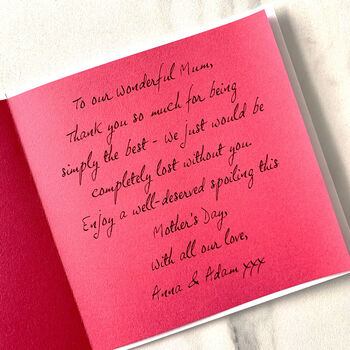 To our wonderful Mum,
Thank you so much for being
simply the best - we just would be
completely lost without you.
Enjoy a well-deserved spoiling this
Mother's Day,
with all our love,
Anna & Adam xxx